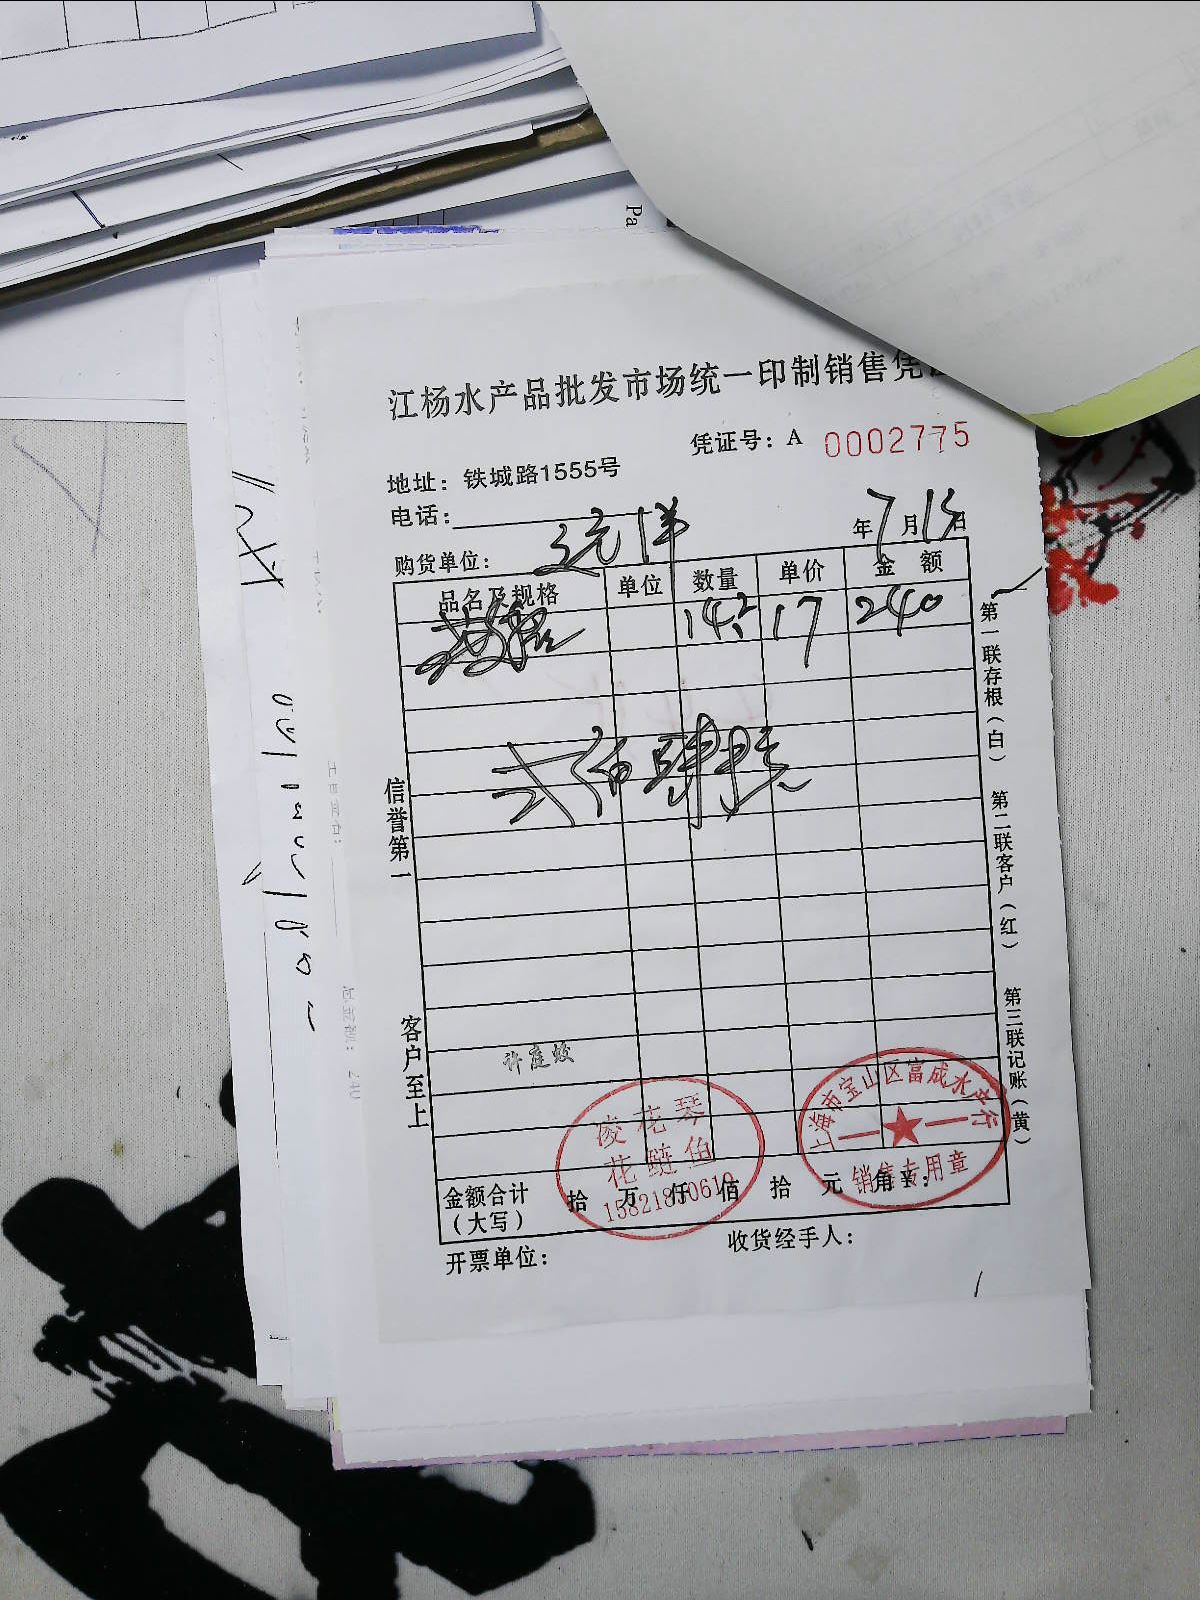 Pa
江杨水产品批发市场统一印制销售凭
凭证号：A 0002775
地址：铁城路1555号
电话：
年7月13日
购货单位：
品名及规格 单位 数量 单价 金 额
14.2 17 240
弍佰肆拾元
信誉第一
客户至上
第一联存根（白）
第二联客户（红）
第三联记账（黄）
许庭蛟
凌花琴
花鲢鱼
上海市宝山区富成水产行
销售专用章
金额合计（大写） 拾 万 仟 佰 拾 元 角 ¥：
开票单位：
收货经手人：